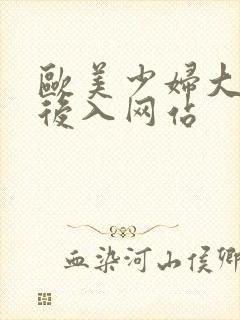 歐美少婦大
後入网佔
血染河山侯卿